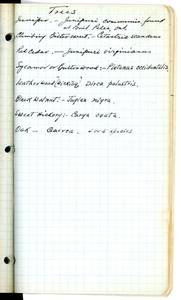 Trees
Juniper. - Juniperus communis found
Climbing Bittersweet: - Celastrus scandens
Red Cedar. - Juniperus virginianus
Sycamore or Buttonwood: - Platanus occidentalis
Leatherwood (Wickiup) Dirca palustris.
Black Walnut: - Juglan nigra.
Sweet Hickory: - Carya ovata.
Oak - Quercu.